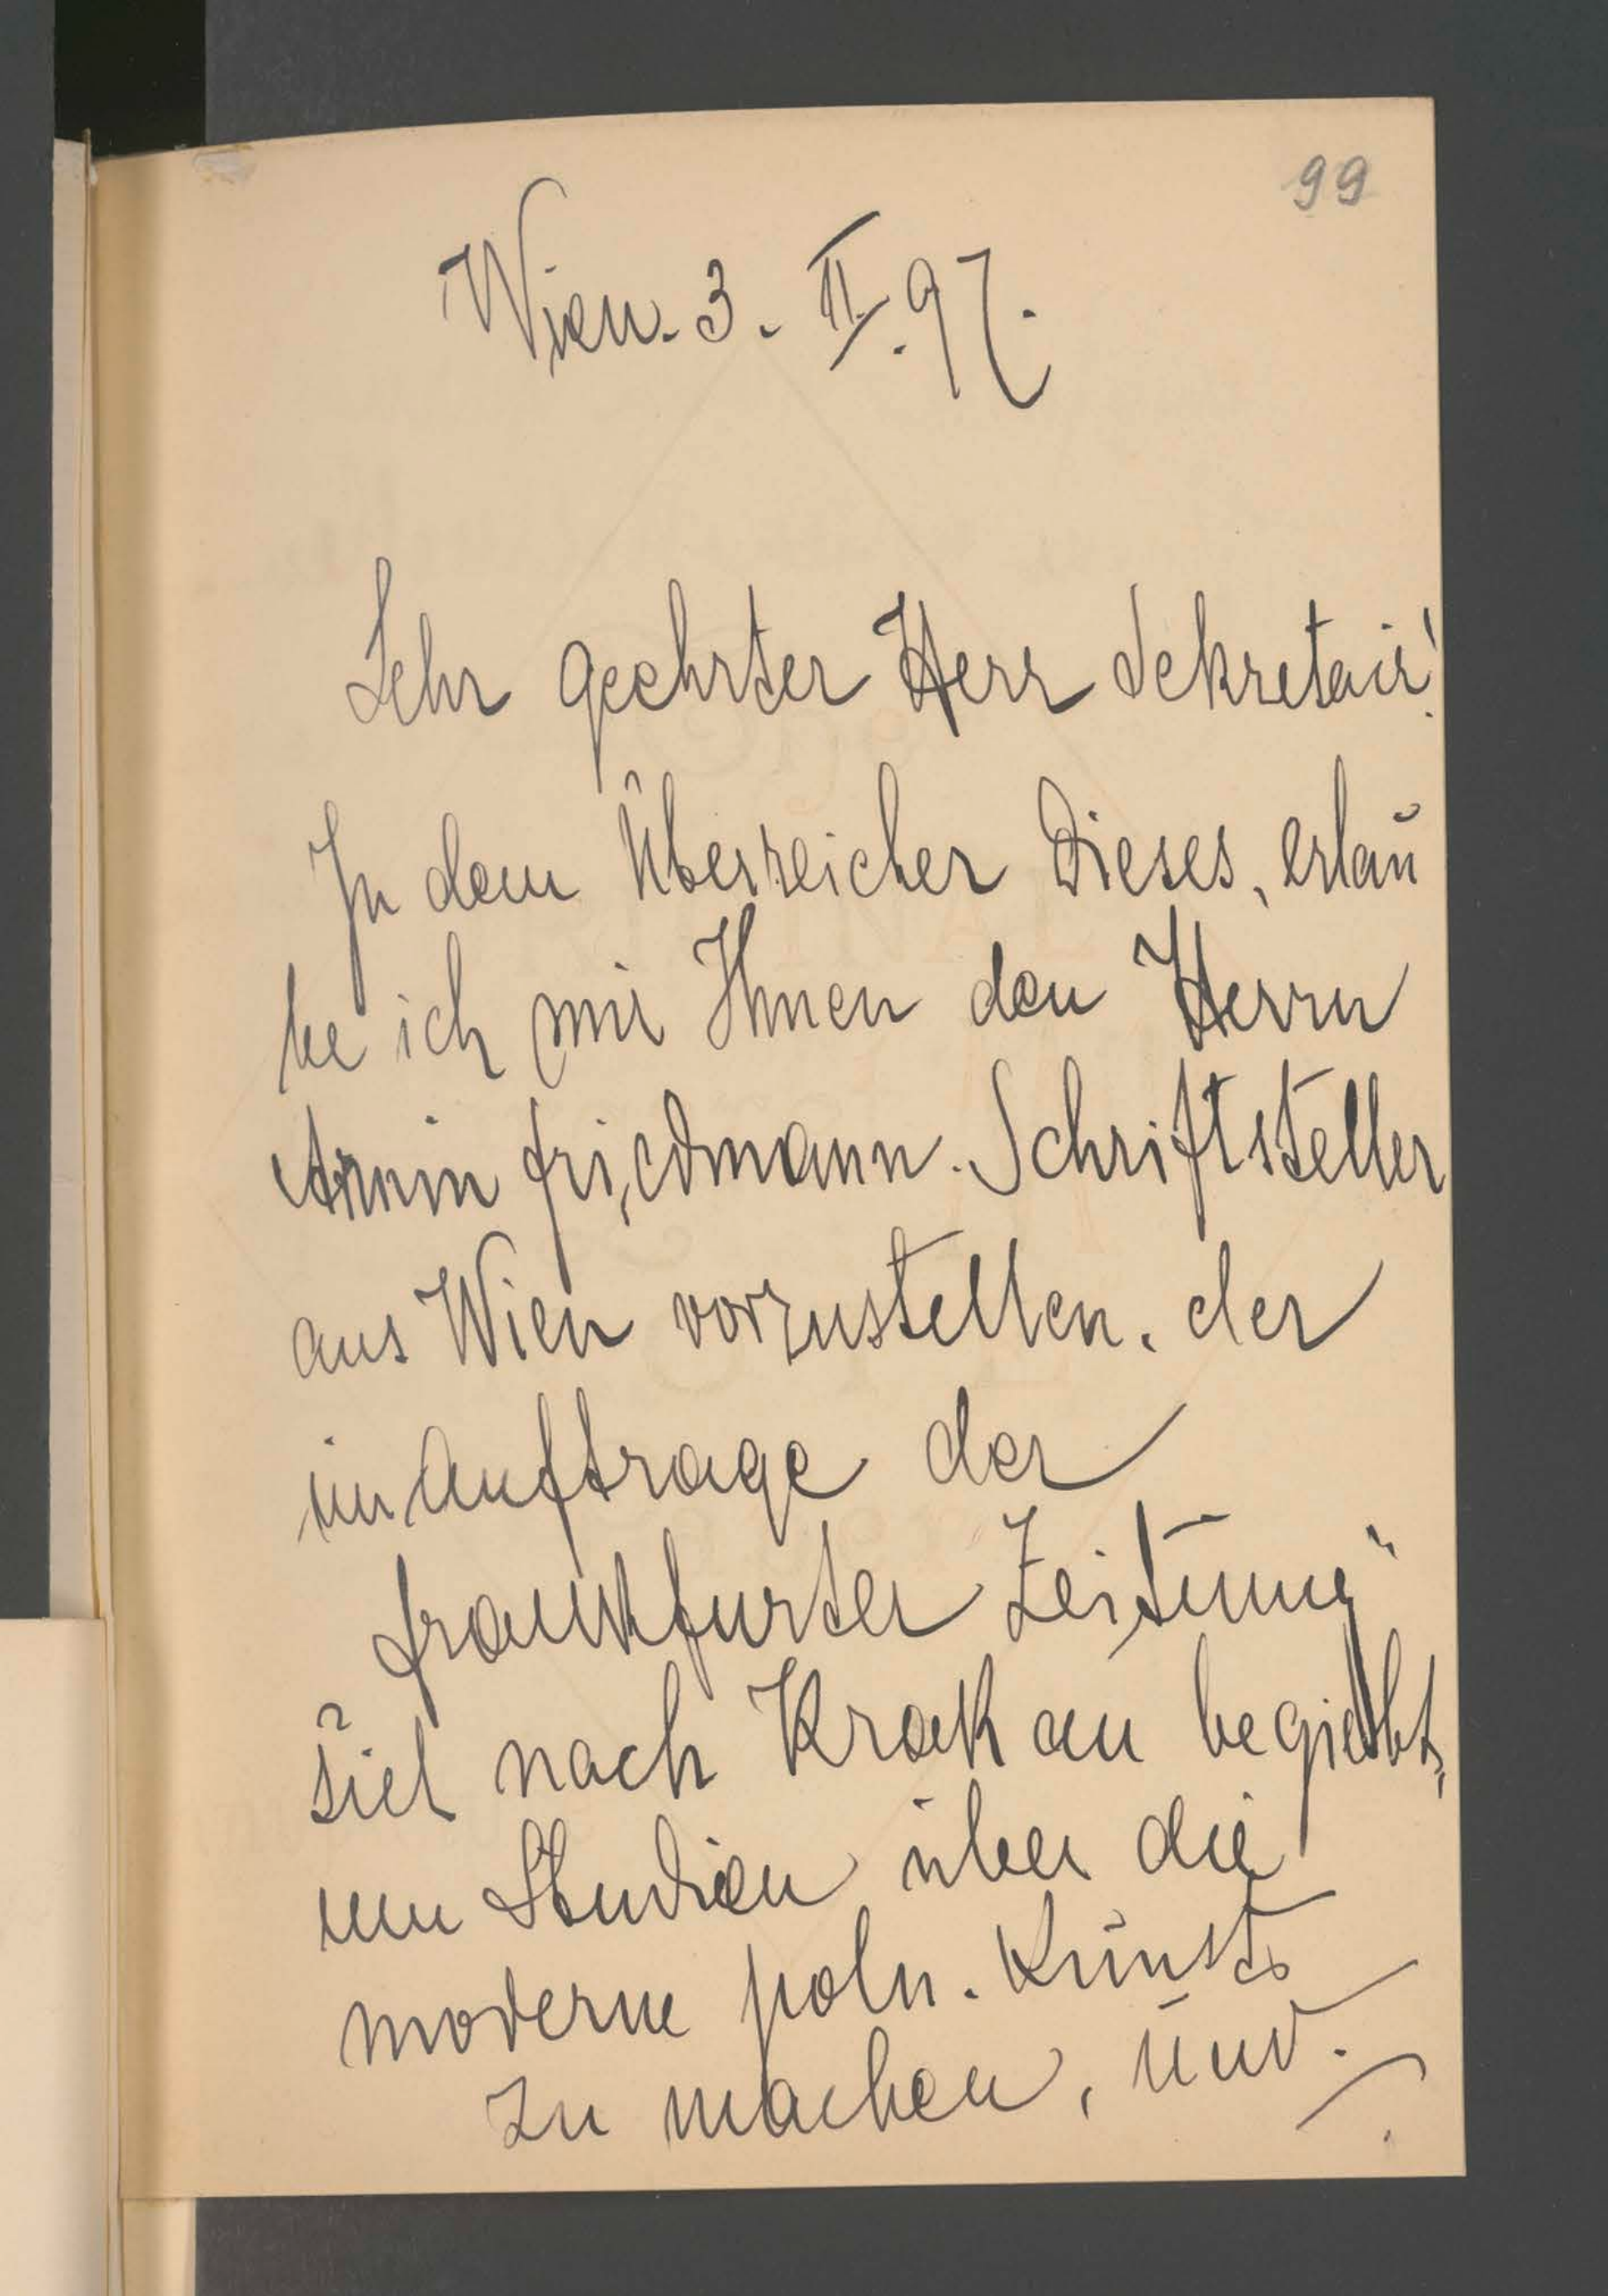 99
Wien. 3. II. 97.
Sehr geehrter Herr Sekretair!
In dem Überreicher Dieses, erlau
be ich mir Ihnen den Herrn
Armin Friedmann. Schriftsteller
aus Wien vorzustellen. der
im Auftrage der
Frankfurter Zeitung"
sich nach Krakau begiebt,
um Studien über die
moderne poln. Kunst
zu machen, und.